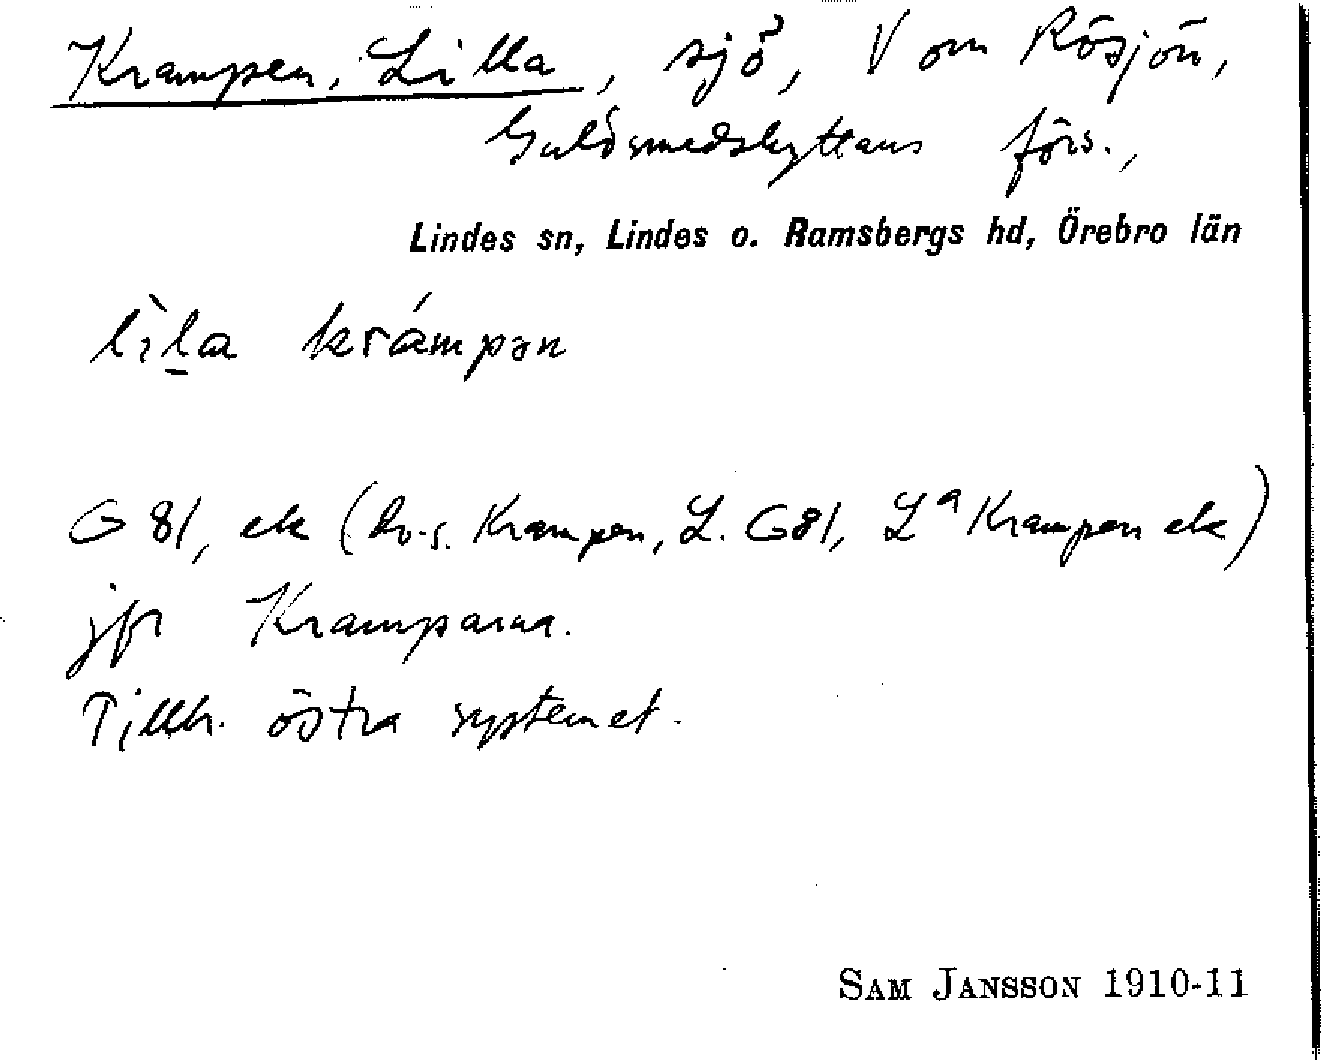 Krampen, Lilla, sjö, V om Rösjön,
Guldsmedshyttans förs.,
Lindes sn, Lindes o. Ramsbergs hd, Örebro län
lìl̠a krámpən
G 81, ek (hv-s. Krampen, L. G81, Lᵃ Krampen ek)
jfr Kramparna.
Tillh. östra systemet.
SAM JANSSON 1910-11